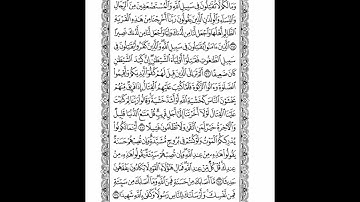 وَمَا لَكُمْ لَا تُقَٰتِلُونَ فِي سَبِيلِ ٱللَّهِ وَٱلْمُسْتَضْعَفِينَ مِنَ ٱلرِّجَالِ
وَٱلنِّسَآءِ وَٱلْوِلْدَٰنِ ٱلَّذِينَ يَقُولُونَ رَبَّنَآ أَخْرِجْنَا مِنْ هَٰذِهِ ٱلْقَرْيَةِ
ٱلظَّالِمِ أَهْلُهَا وَٱجْعَل لَّنَا مِن لَّدُنكَ وَلِيًّا وَٱجْعَل لَّنَا مِن لَّدُنكَ نَصِيرًا
٧٥ ٱلَّذِينَ ءَامَنُوا۟ يُقَٰتِلُونَ فِي سَبِيلِ ٱللَّهِ وَٱلَّذِينَ كَفَرُوا۟ يُقَٰتِلُونَ فِي
سَبِيلِ ٱلطَّٰغُوتِ فَقَٰتِلُوٓا۟ أَوْلِيَآءَ ٱلشَّيْطَٰنِ إِنَّ كَيْدَ ٱلشَّيْطَٰنِ
كَانَ ضَعِيفًا ٧٦ أَلَمْ تَرَ إِلَى ٱلَّذِينَ قِيلَ لَهُمْ كُفُّوٓا۟ أَيْدِيَكُمْ وَأَقِيمُوا۟
ٱلصَّلَوٰةَ وَءَاتُوا۟ ٱلزَّكَوٰةَ فَلَمَّا كُتِبَ عَلَيْهِمُ ٱلْقِتَالُ إِذَا فَرِيقٌ مِّنْهُمْ
يَخْشَوْنَ ٱلنَّاسَ كَخَشْيَةِ ٱللَّهِ أَوْ أَشَدَّ خَشْيَةً وَقَالُوا۟ رَبَّنَا لِمَ كَتَبْتَ
عَلَيْنَا ٱلْقِتَالَ لَوْلَآ أَخَّرْتَنَآ إِلَىٰٓ أَجَلٍ قَرِيبٍ قُلْ مَتَٰعُ ٱلدُّنْيَا قَلِيلٌ
وَٱلْءَاخِرَةُ خَيْرٌ لِّمَنِ ٱتَّقَىٰ وَلَا تُظْلَمُونَ فَتِيلًا ٧٧ أَيْنَمَا تَكُونُوا۟
يُدْرِككُّمُ ٱلْمَوْتُ وَلَوْ كُنتُمْ فِي بُرُوجٍ مُّشَيَّدَةٍ وَإِن تُصِبْهُمْ حَسَنَةٌ
يَقُولُوا۟ هَٰذِهِۦ مِنْ عِندِ ٱللَّهِ وَإِن تُصِبْهُمْ سَيِّئَةٌ يَقُولُوا۟ هَٰذِهِۦ مِنْ
عِندِكَ قُلْ كُلٌّ مِّنْ عِندِ ٱللَّهِ فَمَالِ هَٰٓؤُلَآءِ ٱلْقَوْمِ لَا يَكَادُونَ يَفْقَهُونَ
حَدِيثًا ٧٨ مَّآ أَصَابَكَ مِنْ حَسَنَةٍ فَمِنَ ٱللَّهِ وَمَآ أَصَابَكَ مِن سَيِّئَةٍ
فَمِن نَّفْسِكَ وَأَرْسَلْنَٰكَ لِلنَّاسِ رَسُولًا وَكَفَىٰ بِٱللَّهِ شَهِيدًا ٧٩